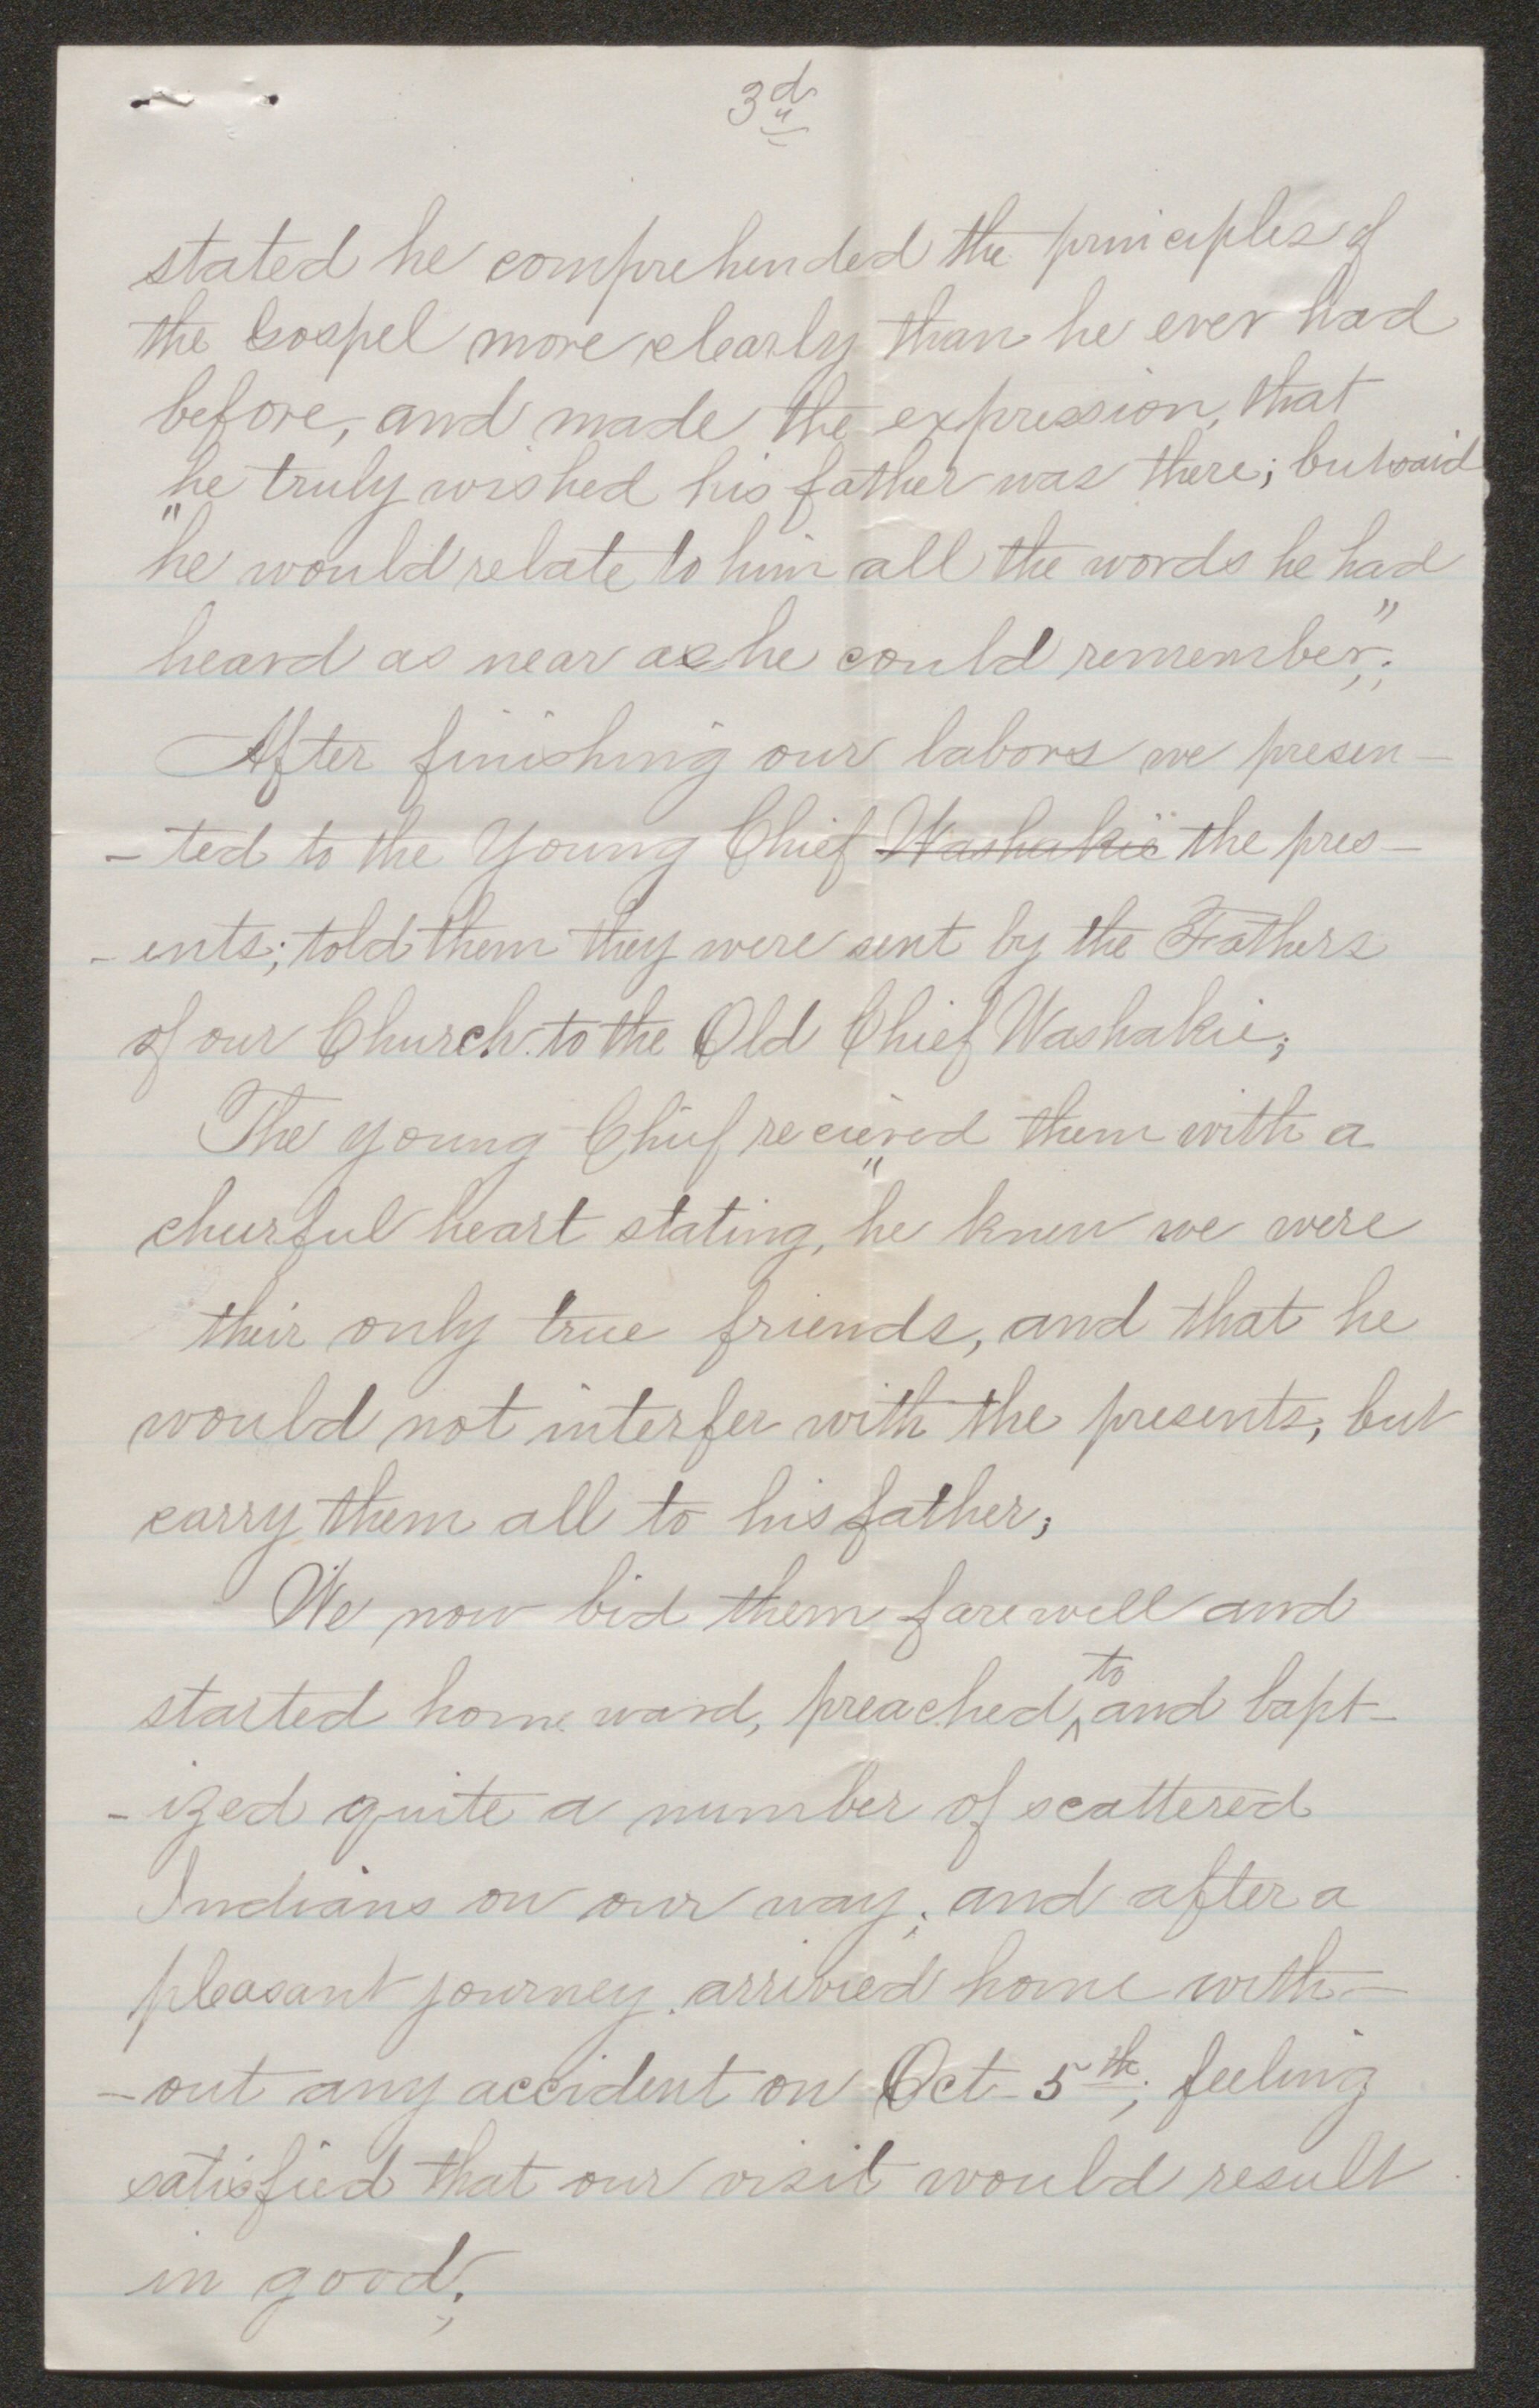 3d
stated he comprehended the principles of
the Gospel more clearly than he ever had
before, and made the expression, that
he truly wished his father was there; but said
"he would relate to him all the words he had
heard as near as he could remember,";
After finishing our labors we presen-
-ted to the Young Chief Washakie the pres-
-ents; told them they were sent by the Fathers
of our Church to the Old Chief Washakie;
The young Chief recieved them with a
cheerful heart stating, "he knew we were
their only true friends, and that he
would not interfer with the presents, but
carry them all to his father;
We now bid them farewell and
started home ward, preached to and bapt-
-ized quite a number of scattered
Indians on our way; and after a
pleasant journey arrived home with-
-out any accident on Oct 5th; feeling
satisfied that our visit would result
in good;